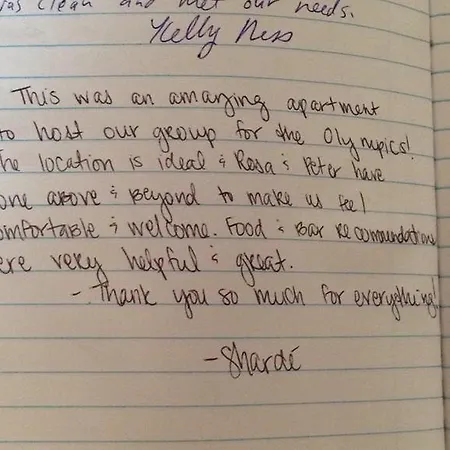 was clean and met our needs.
Kelly Ness
This was an amazing apartment
to host our group for the Olympics!
The location is ideal & Rosa & Peter have
one above & beyond to make us feel
omfortable & welcome. Food & Bar recommendations
ere very helpful & great.
- Thank you so much for everything!
- Shardé